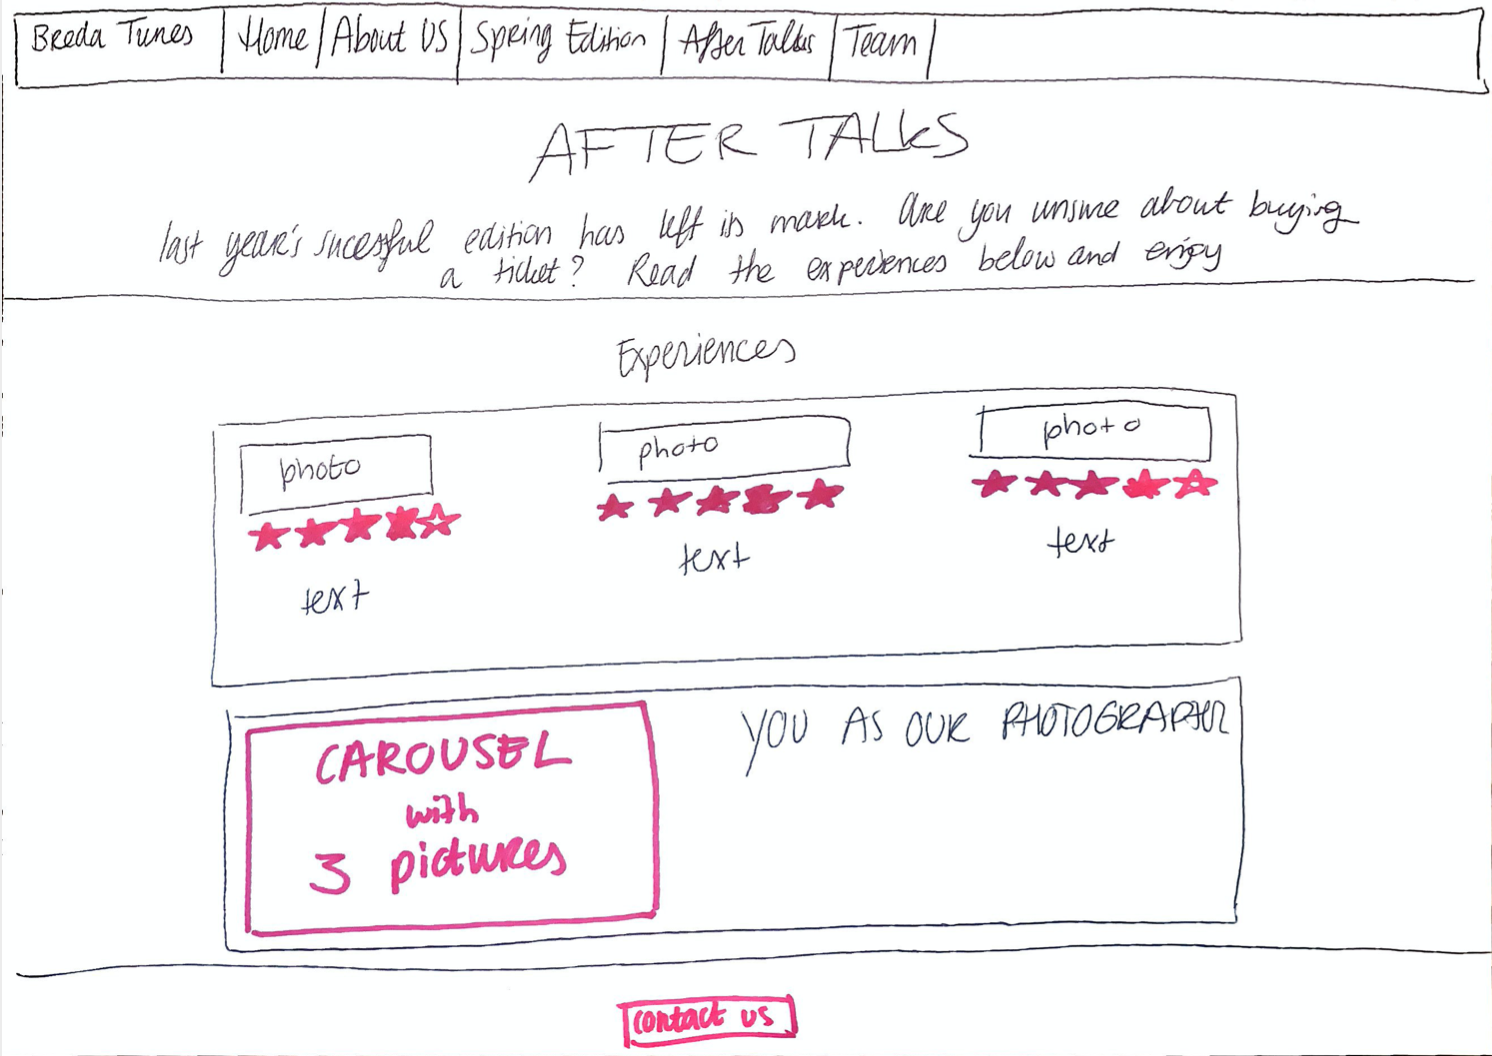 Breda Tunes Home About US Spring Edition After Talks Team
AFTER TALKS
last year's sucessful edition has left its mark. Are you unsure about buying
a ticket? Read the experiences below and enjoy
Experiences
photo photo photo
text text text
CAROUSEL
with
3 pictures
YOU AS OUR PHOTOGRAPHER
contact us